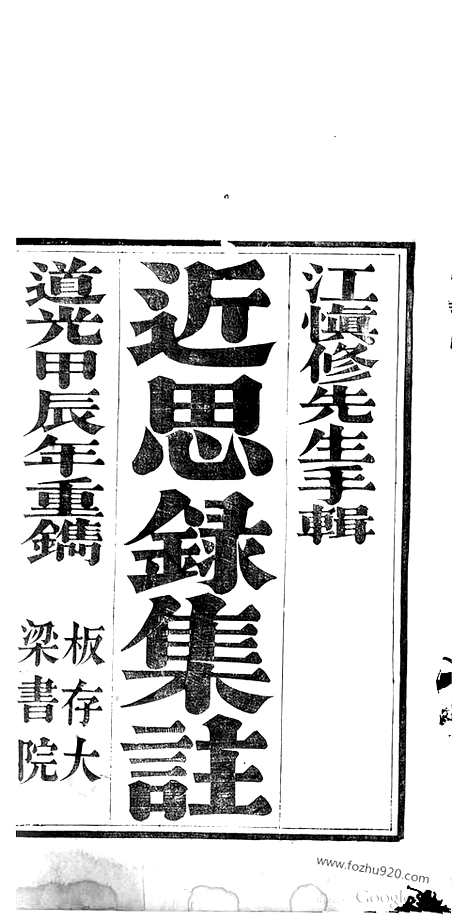 江慎修先生手輯
近思録集註
道光甲辰年重鐫
板存大
梁書院
www.fozhu920.com
Google